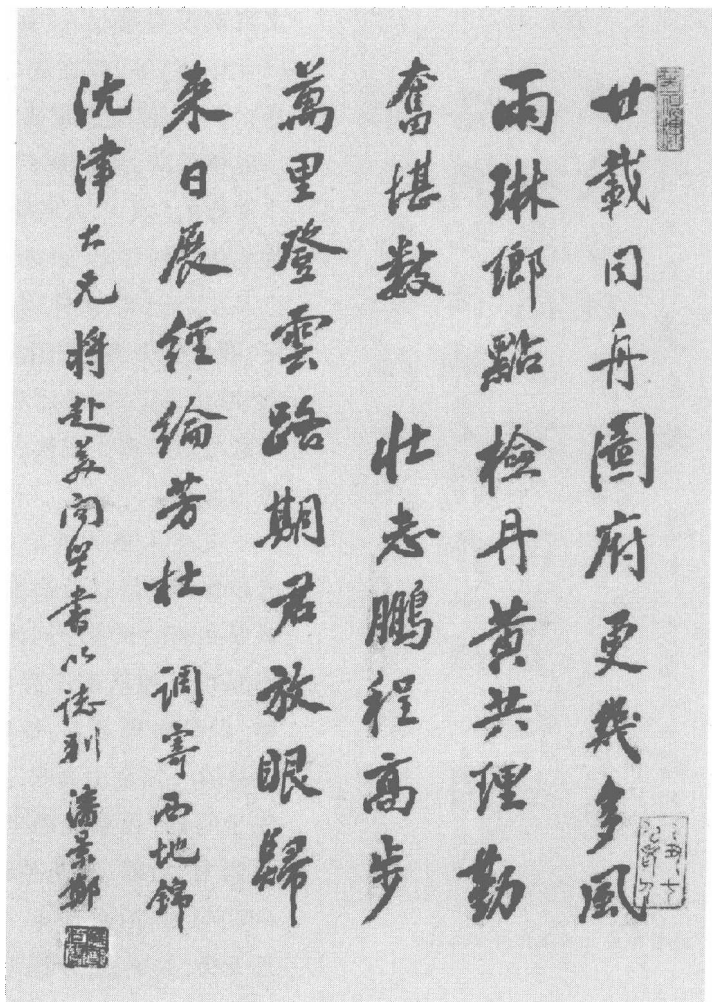 廿載同舟圖府更幾多風
雨琳瑯點檢丹黃共理勤
奮堪數 壯志鵬程高步
萬里登雲路期君放眼歸
來日展經綸芳杜 調寄西地錦
沈津大兄將赴美問學書以誌別 潘景鄭